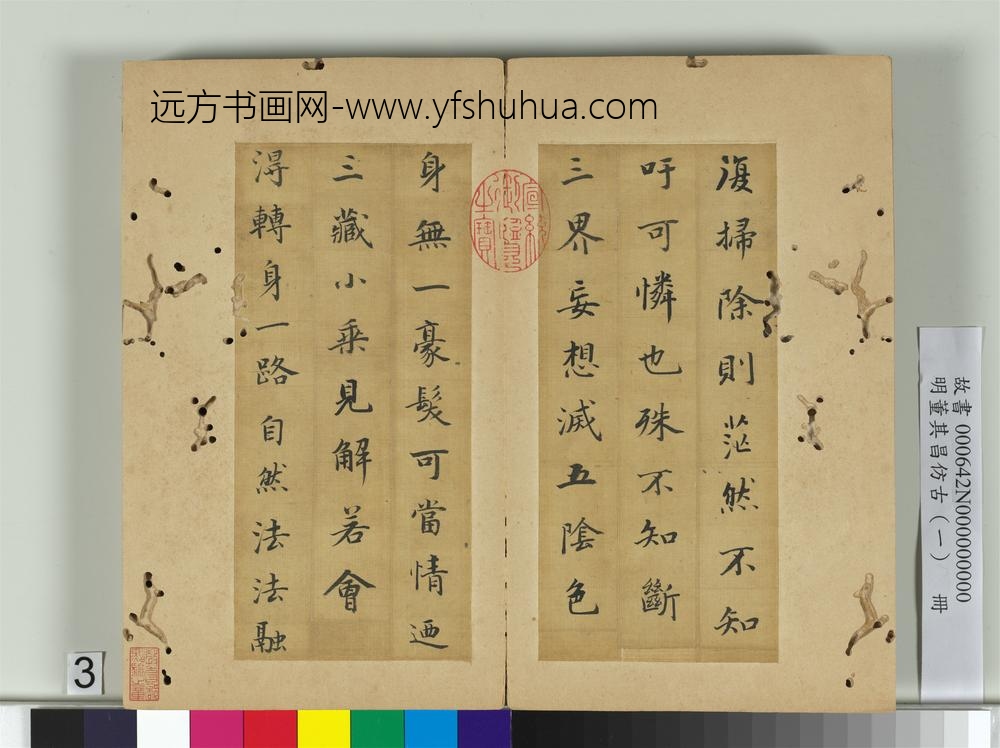 远方书画网-www.yfshuhua.com
復掃除則茫然不知
吁可憐也殊不知斷
三界妄想滅五陰色
身無一豪髮可當情迺
三藏小乘見解若會
得轉身一路自然法法融
宣統御覽之寶
故書 000642N000000000
明董其昌仿古(一) 冊
3